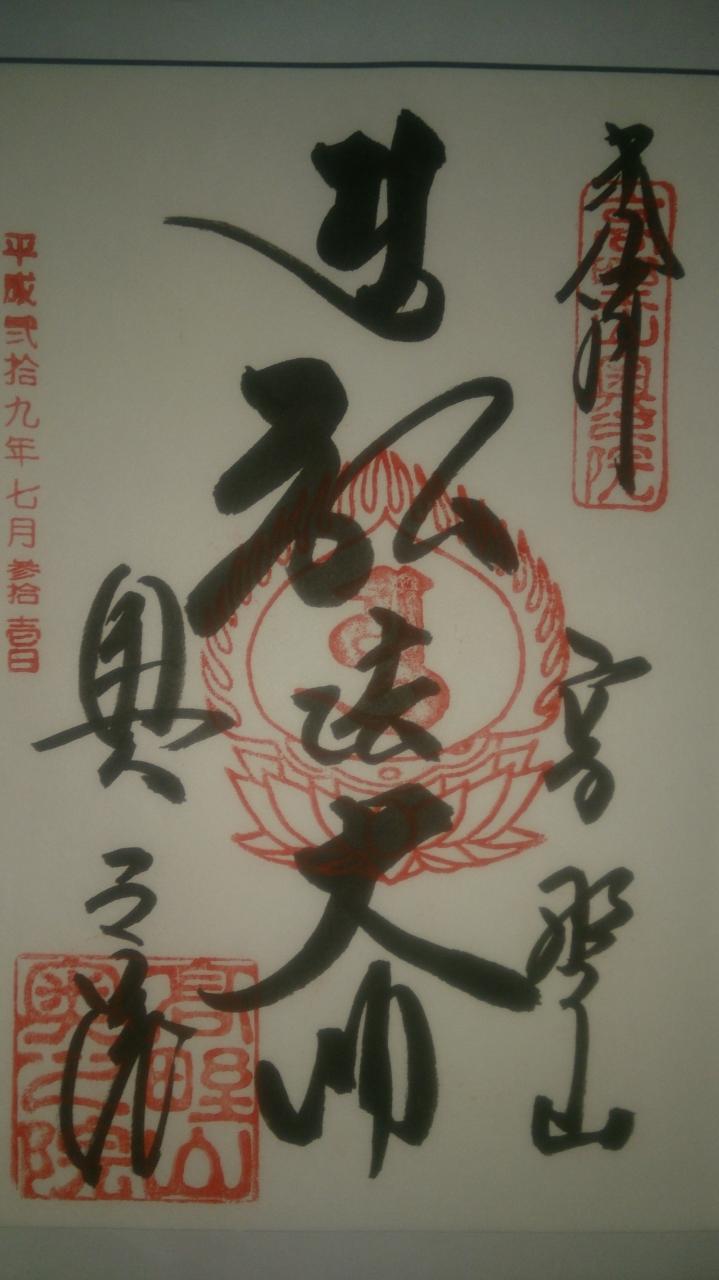 奉拝
高野山奥之院
高野山
弘法大師
奥之院
高野山
奥之院
平成弐拾九年七月参拾壱日